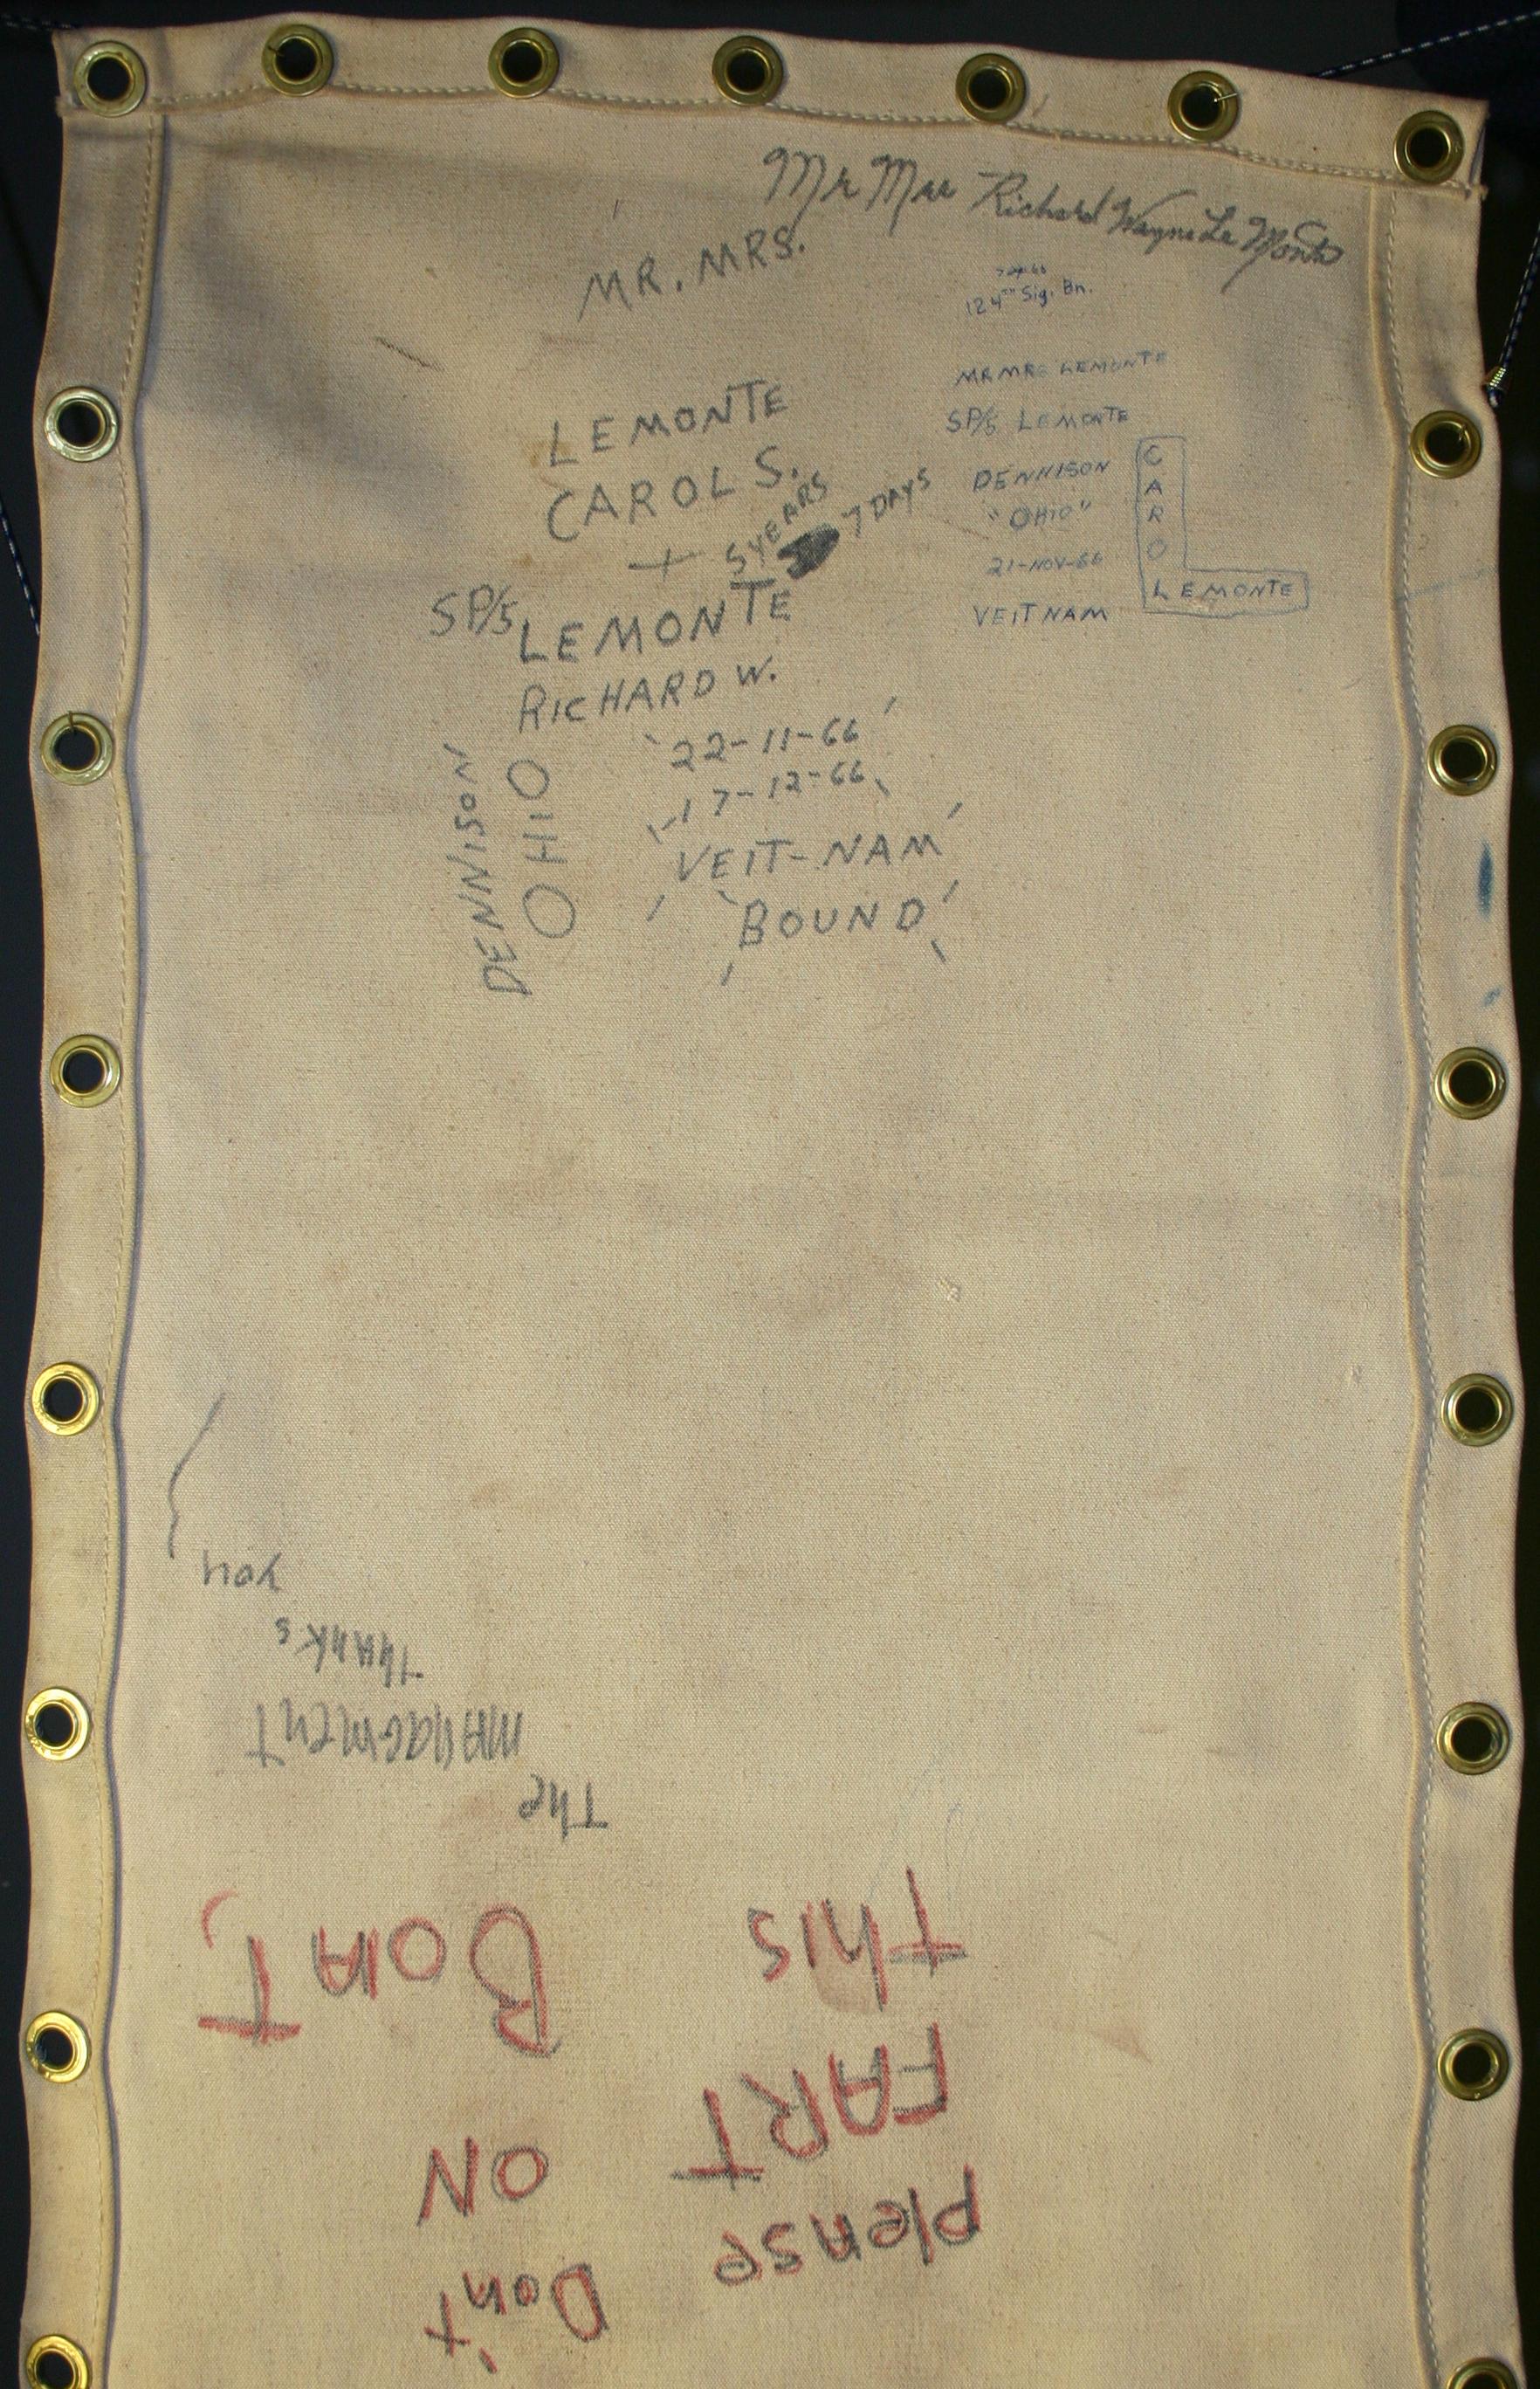 Mr Mrs Richard Wayne Le Monte
MR. MRS.
LEMONTE
CAROL S.
+ 5 YEARS 7 DAYS
SP/5 LEMONTE
RICHARD W.
22-11-66
17-12-66
VEIT-NAM
BOUND
DENNISON
OHIO
124th Sig. Bn.
MR MRS LEMONTE
SP/5 LEMONTE
DENNISON
"OHIO"
21-NOV-66
VEITNAM
CARO
LEMONTE
Please Don't
FART ON
this BOAT,
The
MANAGMENT
THANKS
You